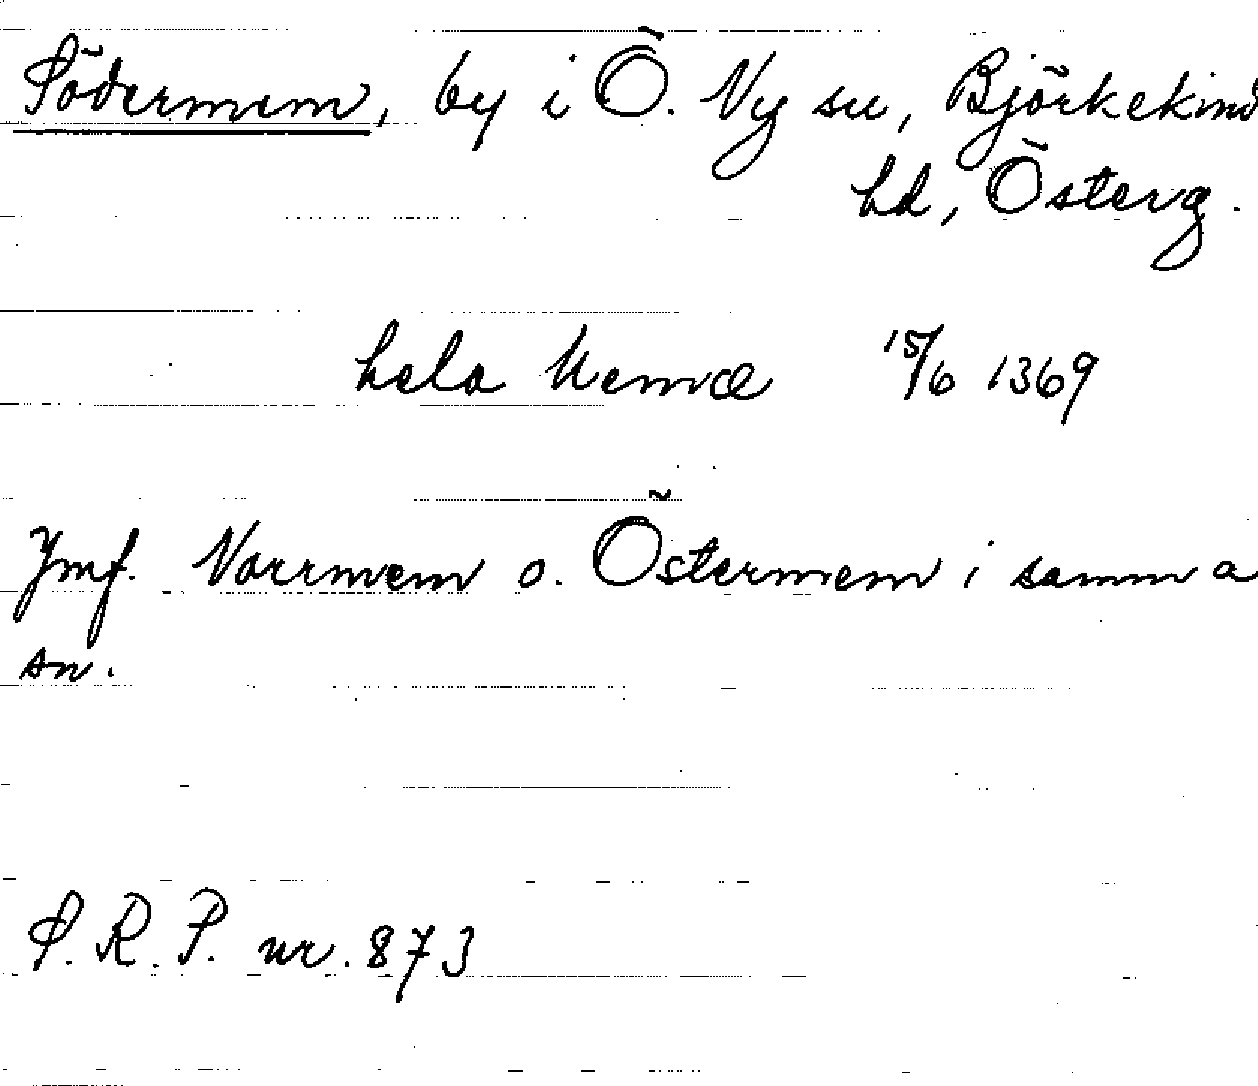 Södermem, by i Ö. Ny sn, Björkekind
hd, Österg.
hela Memæ 15/6 1369
Jmf. Norrmem o. Östermem i samma
sn.
S. R. P. nr. 873